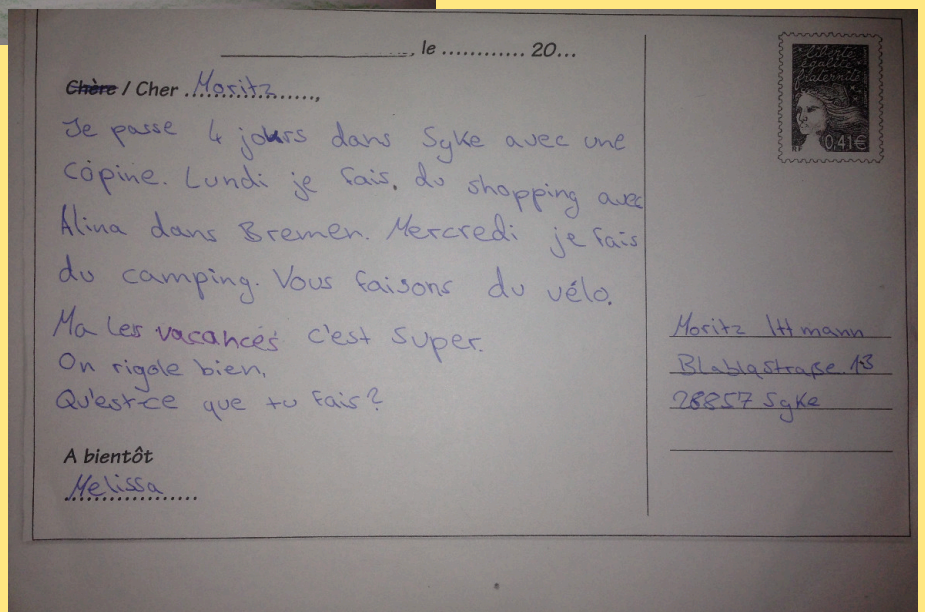 , le ............ 20...
Chère / Cher Moritz,
Je passe 4 jours dans Syke avec une
copine. Lundi je fais du shopping avec
Alina dans Bremen. Mercredi je fais
du camping. Vous faisons du vélo.
Ma Les vacances c'est super.
On rigole bien.
Qu'est-ce que tu fais?
A bientôt
Melissa
liberté
égalité
fraternité
0,41€
Moritz Ittmann
Blablastraße 13
28857 Syke